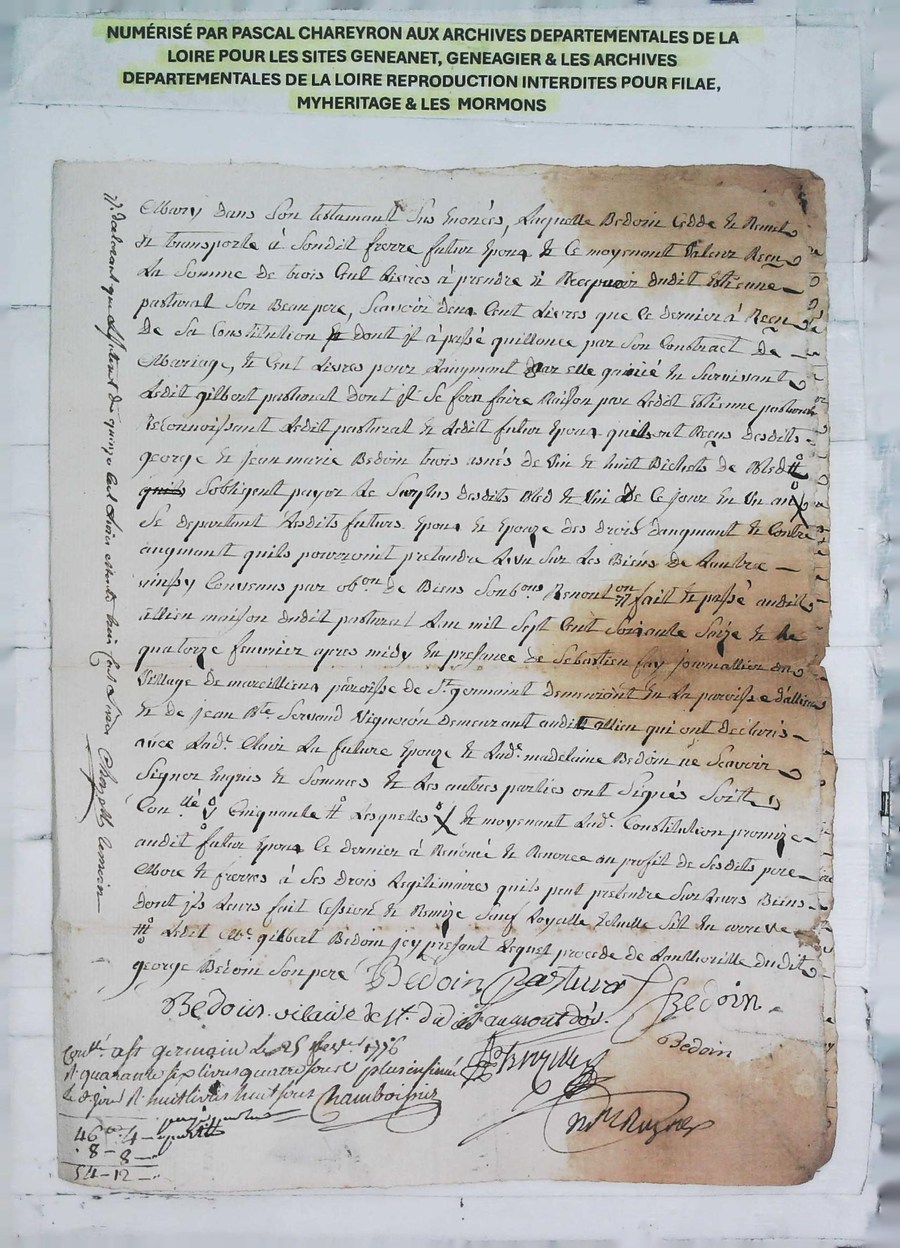 NUMÉRISÉ PAR PASCAL CHAREYRON AUX ARCHIVES DEPARTEMENTALES DE LA
LOIRE POUR LES SITES GENEANET, GENEAGIER & LES ARCHIVES
DEPARTEMENTALES DE LA LOIRE REPRODUCTION INTERDITES POUR FILAE,
MYHERITAGE & LES MORMONS
Mary dans Son testamant Sus Enoncés, Laquelle Bedoin Cedde & Remet
& transporte à Sondit frerre futur Epoux & Ce moyenant Valeur Recu
La Somme de trois Cent Livres à prendre & Recepvoir dudit Etienne
pastural Son Beaupere, Scavoir deux Cent Livres que Ce dernier à Recu
De Sa Constitution & dont il à passé quillance par Son Contract De
Mariage, & Cent Livres pour Laugmant par elle gaigné En Survivant
Ledit gilbert pastural dont il Se fera faire Raison par Ledit Etienne pastural
Reconnoissant Ledit pastural & Ledit futur Epoux quils ont Recus desdits
george & Jean marie Bedoin trois asnés de Vin & huit Bichets de Bled
quils Sobligent payer Le Surplus desdits Bled & Vin De Ce jour En Un an
Se departant Lesdits futurs Epoux & Epouze des droits daugmant & Contre
augmant quils pouroient pretandre Lun Sur Les Biens de Lautre
ainssy Convenus par obon de Biens Soubons Renonton fait & passé audit
allien maison dudit pastural Lan mil Sept Cent Soixante Saize & le
quatorze feuvrier apres midy En presance de Sebastien fay journallier du
Village de marcillieux paroisse de St germaint demeurant En La paroisse dallieu
& de Jean Bte Servand Vigneron demeurant audit allien qui ont declarés
avec Ladte Clair La future Epouze & Ladte madelaine Bedoin ne Scavoir
Signer Enquis & Sommés & Les autres parties ont Signés Soit
Conllé Cinquante # Lesquelles X & moyenant Ladte Constitution promize
audit futur Epoux Ce dernier à Renoncé & Renonce au profit de Sesdits pere
Mere & frerres à Ses droits Legitimaires quils peut pretendre Sur Leurs Biens
dont ils Leurs fait Cession & Remize Sauf Loyalle Echutte Sil En arrive
# Ledit Mre gilbert Bedoin jcy presant Lequel procede de Lauthorité dudit
george Bedoin Son pere
Bedoin Pastural Bedoin
Bedoin vicaire de St. didier au mont d'or.
Bedoin
Conllé a St germain Le 25 1776
R quarante six livres quatre sous
huit livres huit sous Chamboissier
46 - 4
8 - 8
54 - 12